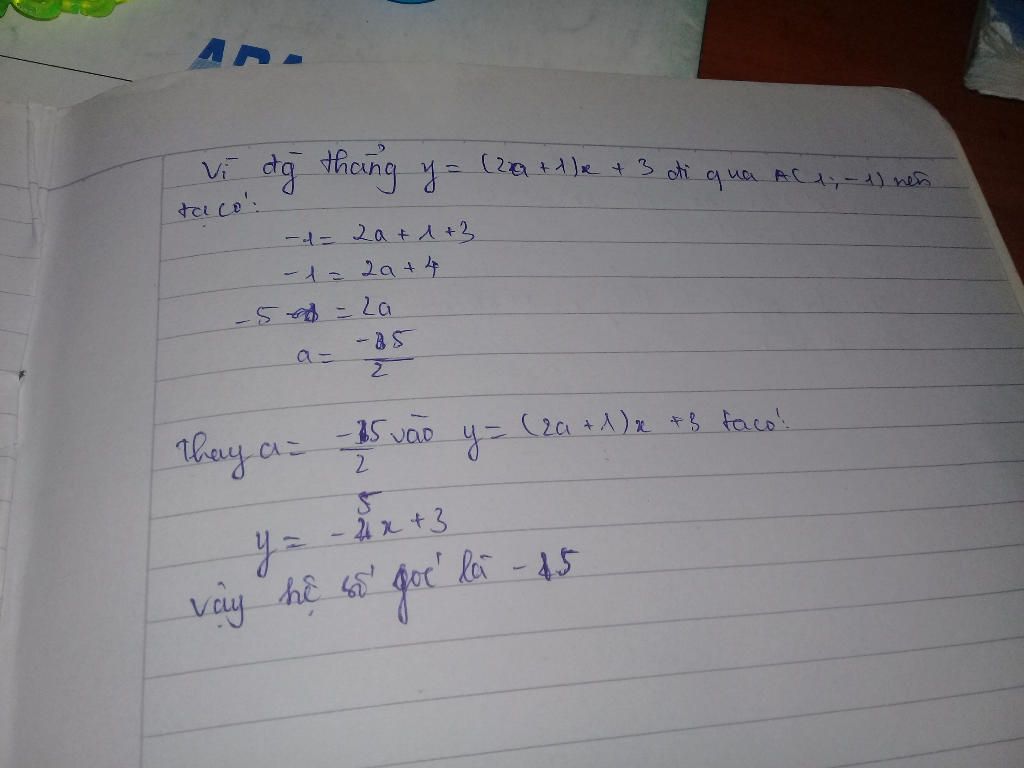 Vì đg thẳng y = (2a + 1)x + 3 đi qua A(1; -1) nên
ta có:
-1 = 2a + 1 + 3
-1 = 2a + 4
-5 = 2a
a = -5/2
Thay a = -5/2 vào y = (2a + 1)x + 3 ta có:
y = -5x + 3
vậy hệ số góc là -5